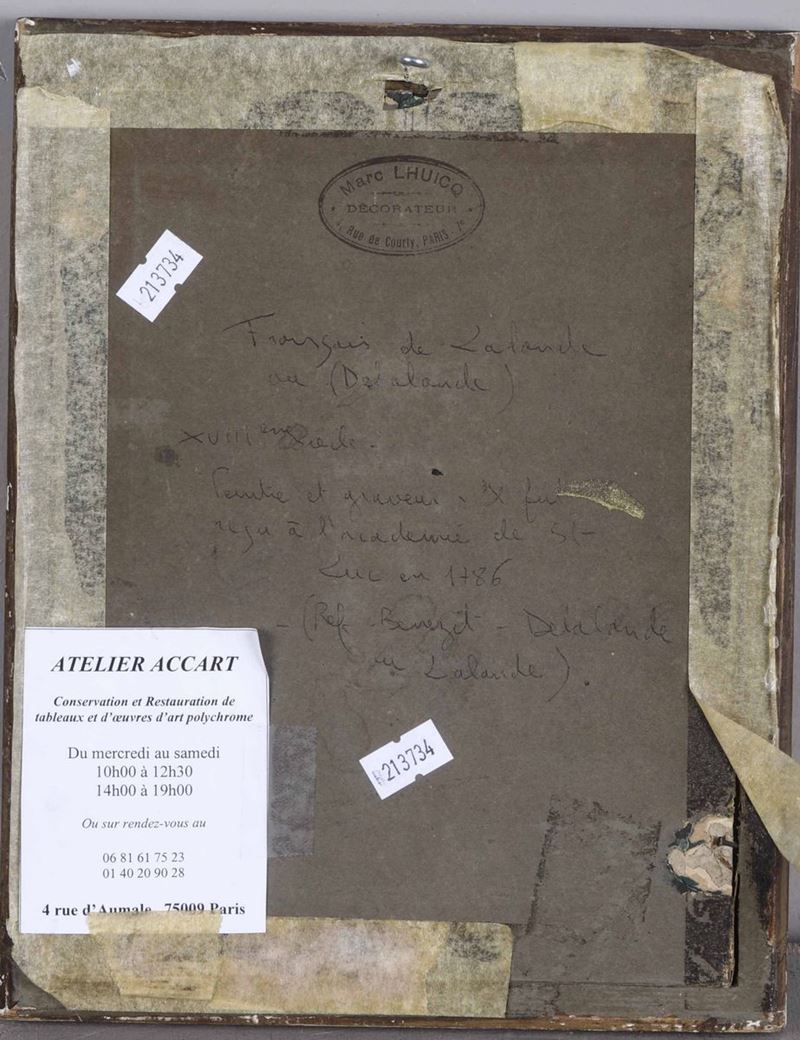 Marc LHUICQ
DÉCORATEUR
Rue de Courty, PARIS 7e
213734
François de Lalande
ou (Delalande)
XVIIIeme Siècle.
Peintre et graveur. Il fut
reçu à l'academie de St-
Luc en 1786
- (Ref - Benezit - Delalande
ou Lalande).
ATELIER ACCART
Conservation et Restauration de
tableaux et d'œuvres d'art polychrome
Du mercredi au samedi
10h00 à 12h30
14h00 à 19h00
Ou sur rendez-vous au
06 81 61 75 23
01 40 20 90 28
4 rue d'Aumale 75009 Paris
213734